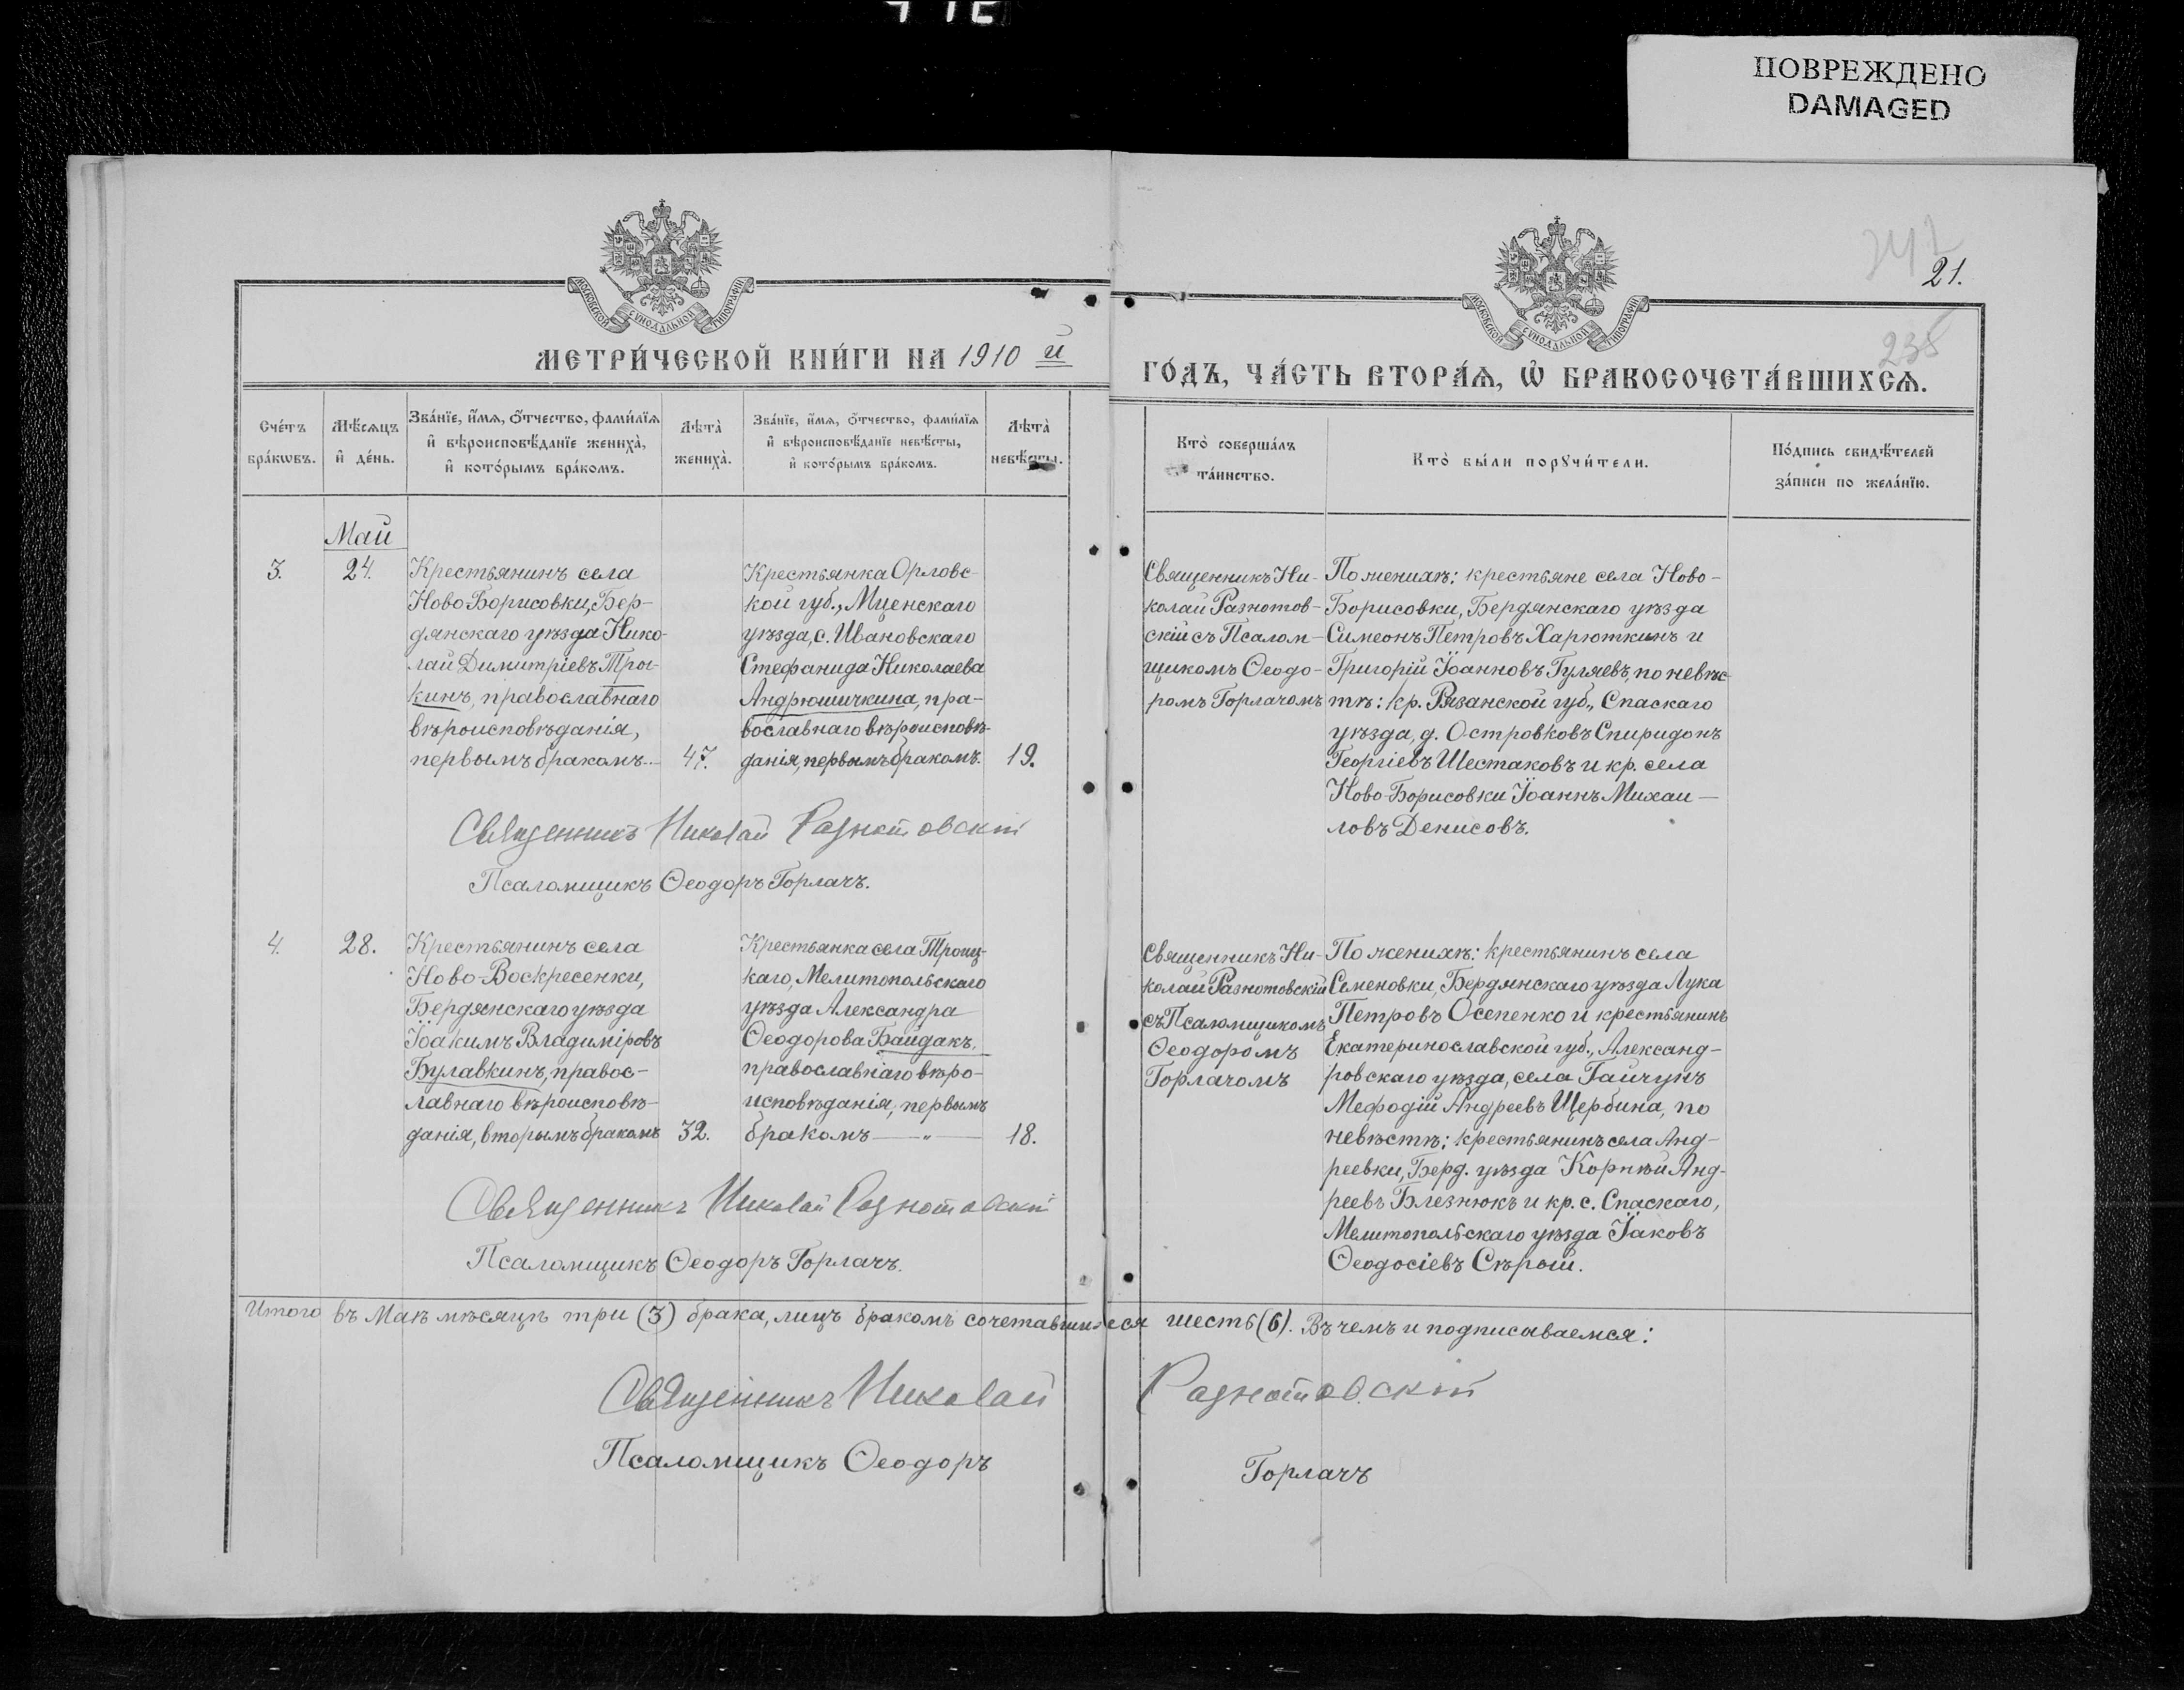 ПОВРЕЖДЕНО
DAMAGED
21.
235
МЕТРИ́ЧЕСКОЙ КНИ́ГИ НА 1910 й
ГО́ДЪ, ЧА́СТЬ ВТОРА́Ѧ, Ѡ҆ БРАКОСОЧЕТА́ВШИХСѦ.
МОСКОВСКОЙ СѴНОДАЛЬНОЙ ТИПОГРАФІИ
МОСКОВСКОЙ СѴНОДАЛЬНОЙ ТИПОГРАФІИ
Сче́тъ
бра́кѡвъ.
Мѣ́сѧцъ
и҆ де́нь.
Зва́нїе, и҆́мѧ, ѻ҆́тчество, фами́лїѧ
и҆ вѣроисповѣ́данїе жениха̀,
и҆ кото́рымъ бра́комъ.
Лѣта̀
жениха̀.
Зва́нїе, и҆́мѧ, ѻ҆́тчество, фами́лїѧ
и҆ вѣроисповѣ́данїе невѣ́сты,
и҆ кото́рымъ бра́комъ.
Лѣта̀
невѣ́сты.
Кто̀ соверша́лъ
та́инство.
Кто̀ бы́ли порꙋчи́тели.
По́дпись свидѣ́телей
за́писи по жела́нїю.
Май
3.
24.
Крестьянинъ села
Ново Борисовки, Бер-
дянскаго уѣзда Нико-
лай Димитріевъ Тры-
кинъ, православнаго
вѣроисповѣданія,
первымъ бракомъ.—
47.
Крестьянка Орловс-
кой губ., Мценскаго
уѣзда, с. Ивановскаго
Стефанида Николаева
Андрюшичкина, пра-
вославнаго вѣроисповѣ-
данія, первымъ бракомъ.
19.
Священникъ Ни-
колай Разнотов-
скій съ Псалом-
щикомъ Ѳеодо-
ромъ Горлачомъ
По женихѣ: крестьяне села Ново-
Борисовки, Бердянскаго уѣзда
Симеонъ Петровъ Харюткинъ и
Григорій Іоанновъ Гуляевъ, по невѣс-
тѣ: кр. Рязанской губ., Спаскаго
уѣзда, д. Островковъ Спиридонъ
Георгіевъ Шестаковъ и кр. села
Ново-Борисовки Іоаннъ Михаи-
ловъ Денисовъ.
Священникъ Николай Разнотовскій
Псаломщикъ Ѳеодоръ Горлачъ.
4.
28.
Крестьянинъ села
Ново-Воскресенки,
Бердянскаго уѣзда
Іоакимъ Владиміровъ
Булавкинъ, правос-
лавнаго вѣроисповѣ-
данія, вторымъ бракомъ
32.
Крестьянка села Троиц-
каго, Мелитопольскаго
уѣзда Александра
Ѳеодорова Байдакъ,
православнаго вѣро-
исповѣданія, первымъ
бракомъ — „ —
18.
Священникъ Ни-
колай Разнотовскій
съ Псаломщикомъ
Ѳеодоромъ
Горлачомъ
По женихѣ: крестьянинъ села
Семеновки, Бердянскаго уѣзда Лука
Петровъ Осепенко и крестьянинъ
Екатеринославской губ., Александ-
ровскаго уѣзда, села Гайчунъ
Мефодій Андреевъ Щербина, по
невѣстѣ: крестьянинъ села Анд-
реевки, Берд. уѣзда Корнѣй Анд-
реевъ Блезнюкъ и кр. с. Спаскаго,
Мелитопольскаго уѣзда Іаковъ
Ѳеодосіевъ Сѣрый.
Священникъ Николай Разнотовскій
Псаломщикъ Ѳеодоръ Горлачъ.
Итого въ Маѣ мѣсяцѣ три (3) брака, лицъ бракомъ сочетавшихся шесть (6). Въ чемъ и подписываемся:
Священникъ Николай Разнотовскій
Псаломщикъ Ѳеодоръ Горлачъ